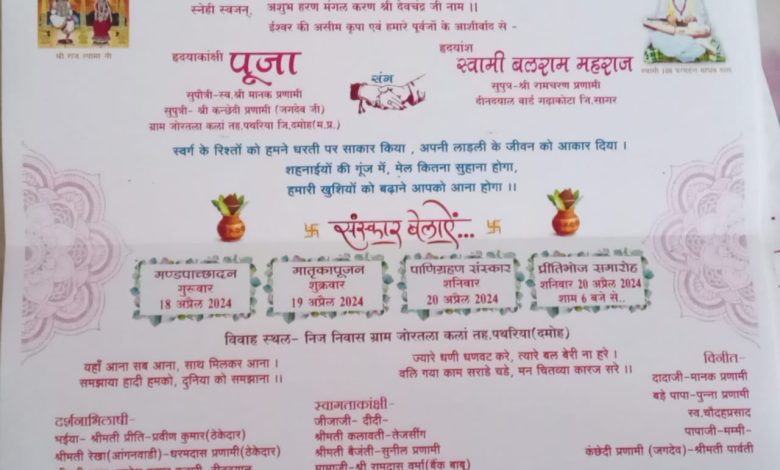 स्नेही स्वजन, अशुभ हरण मंगल करण श्री देवचंद्र जी नाम ।।
ईश्वर की असीम कृपा एवं हमारे पूर्वजों के आशीर्वाद से -
श्री राज श्यामा जी
हृदयाकांक्षी
पूजा
सुपौत्री-स्व.श्री मानक प्रणामी
सुपुत्री- श्री कन्छेदी प्रणामी (जगदेव जी)
ग्राम जोरतला कलां तह.पथरिया जि.दमोह(म.प्र.)
संग
हृदयांश
स्वामी बलराम महराज
सुपुत्र-श्री रामचरण प्रणामी
दीनदयाल वार्ड गढ़ाकोटा जि.सागर
स्वर्ग के रिश्तों को हमने धरती पर साकार किया , अपनी लाड़ली के जीवन को आकार दिया ।
शहनाईयों की गूंज में, मेल कितना सुहाना होगा,
हमारी खुशियों को बढ़ाने आपको आना होगा ।।
संस्कार बेलाऐं...
मण्डपाच्छादन
गुरूवार
18 अप्रैल 2024
मातृकापूजन
शुक्रवार
19 अप्रैल 2024
पाणिग्रहण संस्कार
शनिवार
20 अप्रैल 2024
प्रीतिभोज समारोह
शनिवार 20 अप्रैल 2024
शाम 6 बजे से..
विवाह स्थल- निज निवास ग्राम जोरतला कलां तह.पथरिया(दमोह)
यहाँ आना सब आना, साथ मिलकर आना ।
समझाया हादी हमको, दुनिया को समझाना ।।
ज्यारे धणी धणवट करे, त्यारे बल बेरी ना हरे ।
वलि गया काम सराडे चडे, मन चितव्या कारज सरे ।।
विनीत-
दादाजी-मानक प्रणामी
बड़े पापा-पुन्ना प्रणामी
स्व.चौदहप्रसाद
पापाजी-मम्मी-
कंछेदी प्रणामी (जगदेव)-श्रीमती पार्वती
दर्शनाभिलाषी-
भईया- श्रीमती प्रीति-प्रवीण कुमार(ठेकेदार)
श्रीमती रेखा(आंगनवाडी)-धरमदास प्रणामी(ठेकेदार)
स्वागताकांक्षी-
जीजाजी- दीदी-
श्रीमती कलावती-तेजसींग
श्रीमती बैजंती-सुनील प्रणामी
मामाजी- श्री रामदास वर्मा(बैंक बाबू)